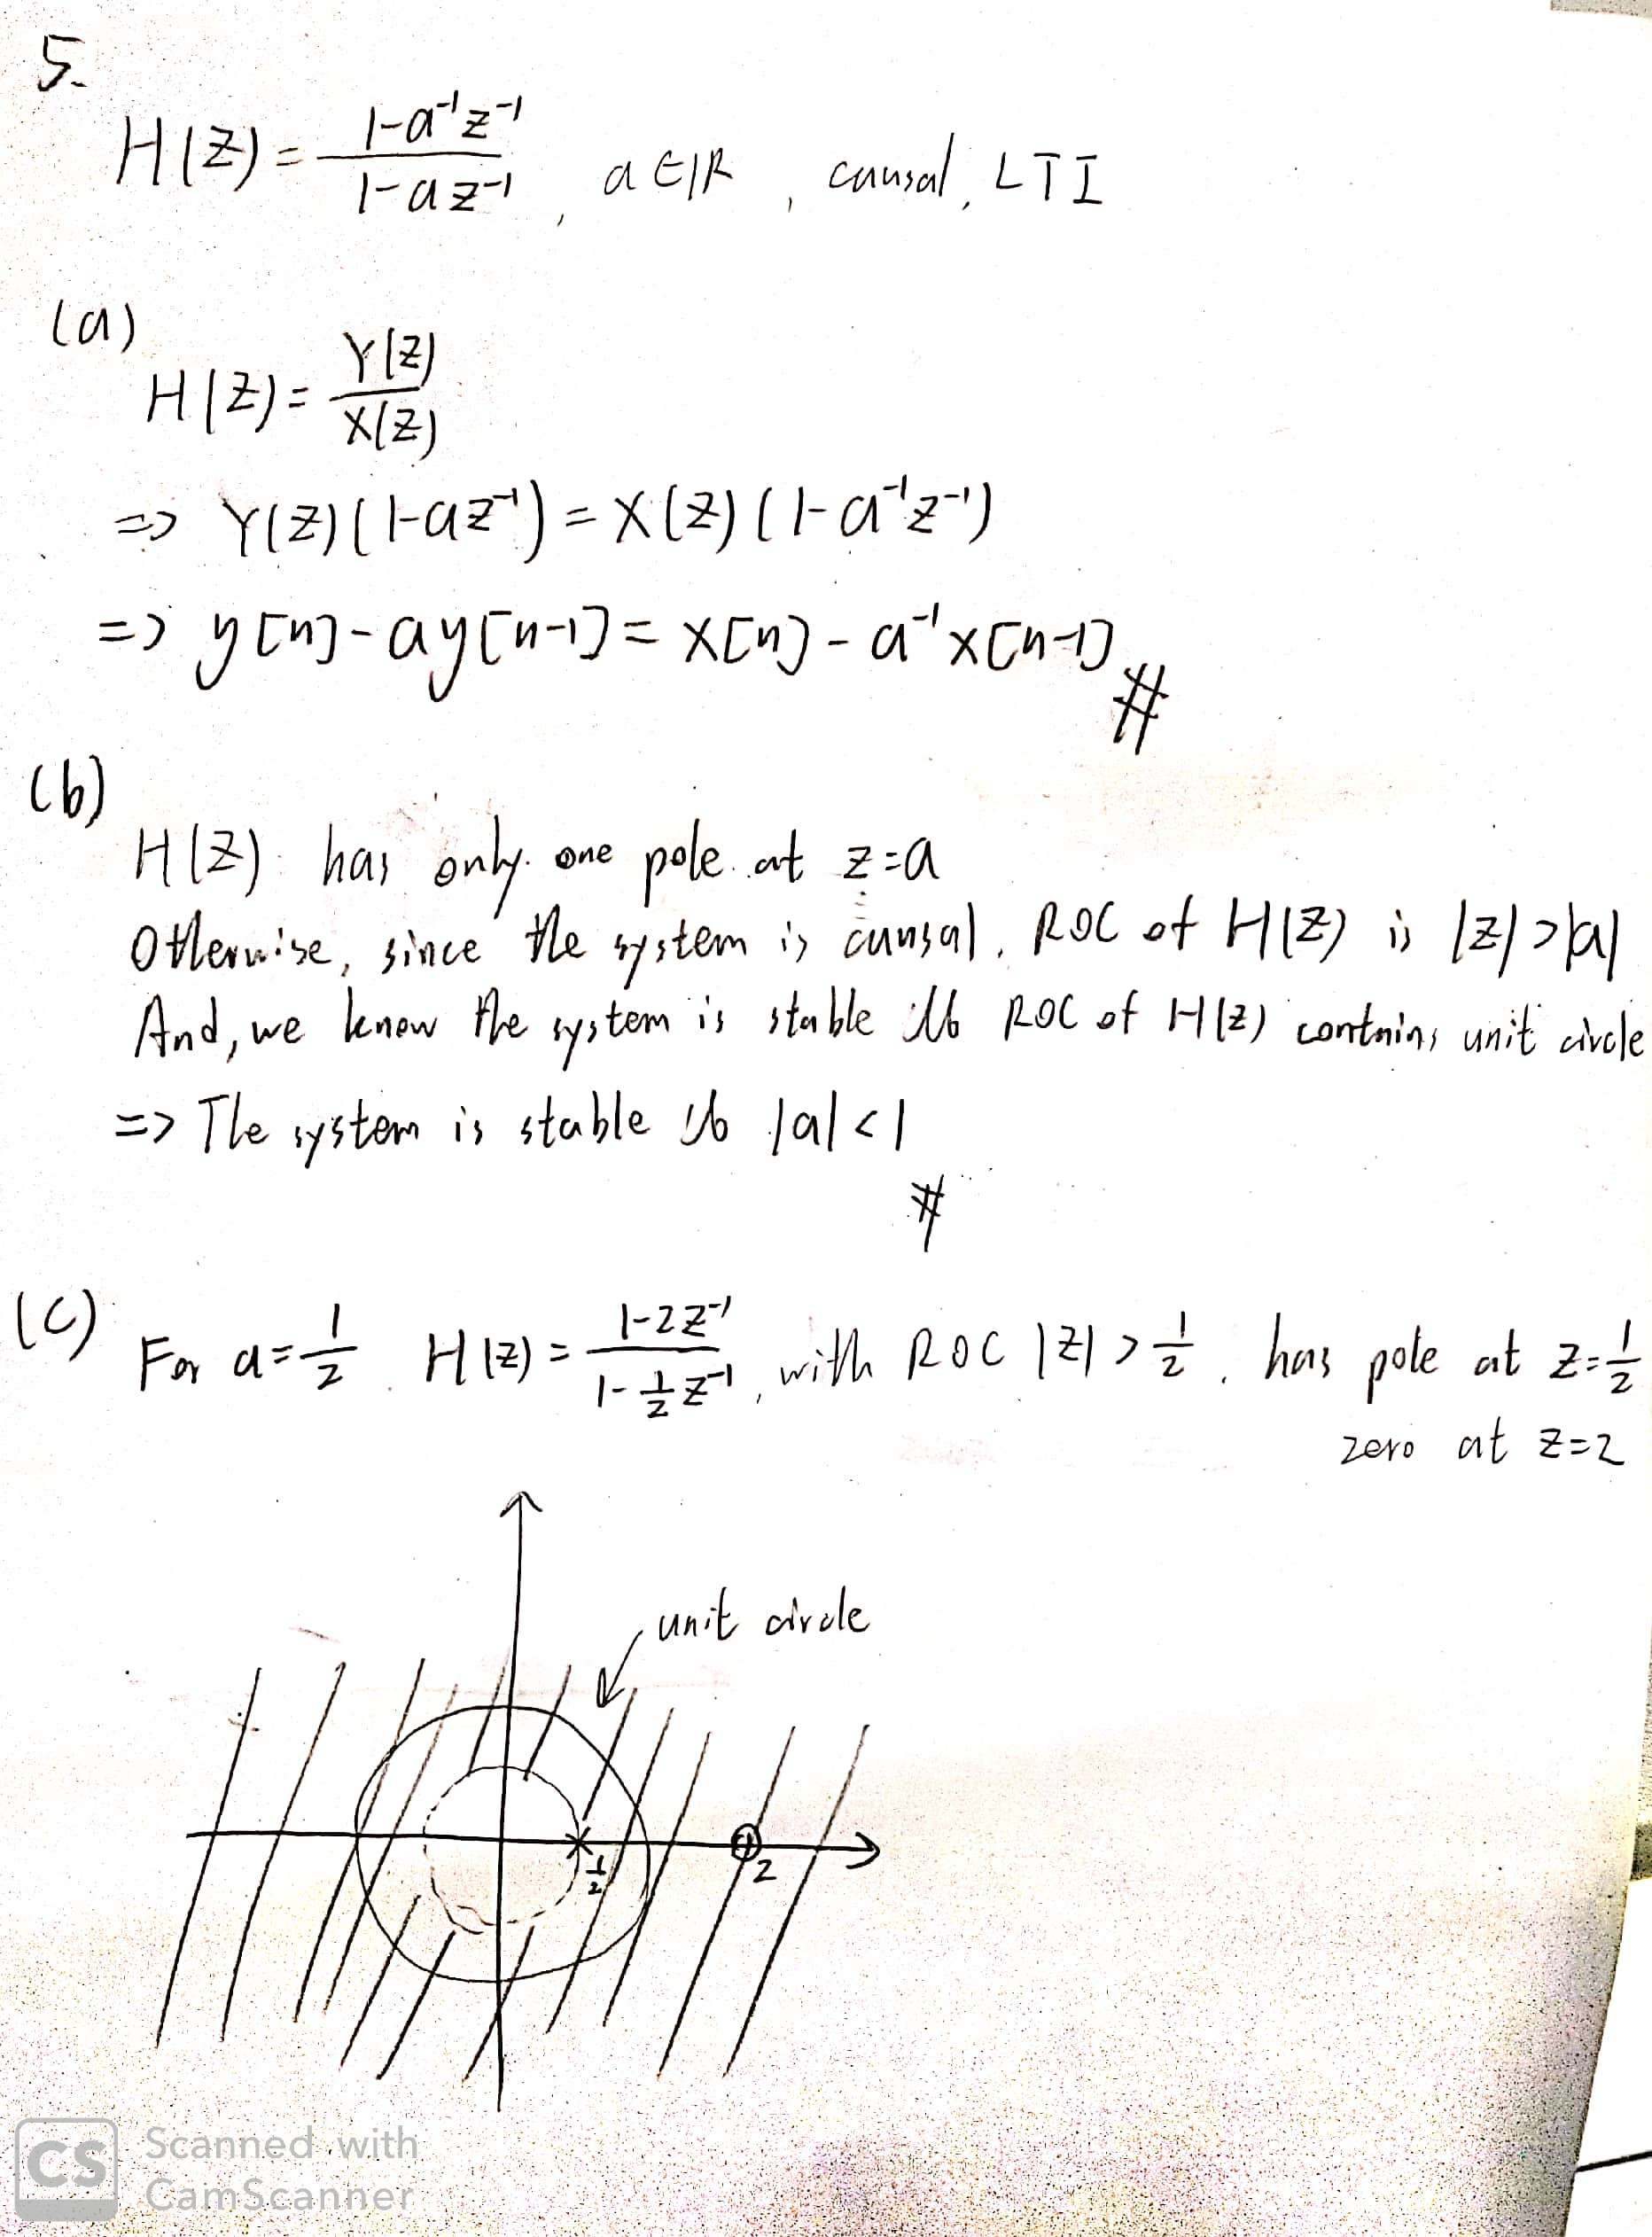 5.
H(z) = \frac{1-a^{-1}z^{-1}}{1-az^{-1}} , a ∈ ℝ , causal, LTI
(a)
H(z) = \frac{Y(z)}{X(z)}
=> Y(z)(1-az^{-1}) = X(z)(1-a^{-1}z^{-1})
=> y[n]-ay[n-1] = x[n]-a^{-1}x[n-1] #
(b)
H(z) has only one pole at z=a
Otherwise, since the system is causal, ROC of H(z) is |z|>|a|
And, we know the system is stable iff ROC of H(z) contains unit circle
=> The system is stable iff |a|<1
#
(c) For a=\frac{1}{2} H(z) = \frac{1-2z^{-1}}{1-\frac{1}{2}z^{-1}}, with ROC |z|>\frac{1}{2}, has pole at z=\frac{1}{2}
zero at z=2
unit circle
\frac{1}{2}
2
CS Scanned with
CamScanner